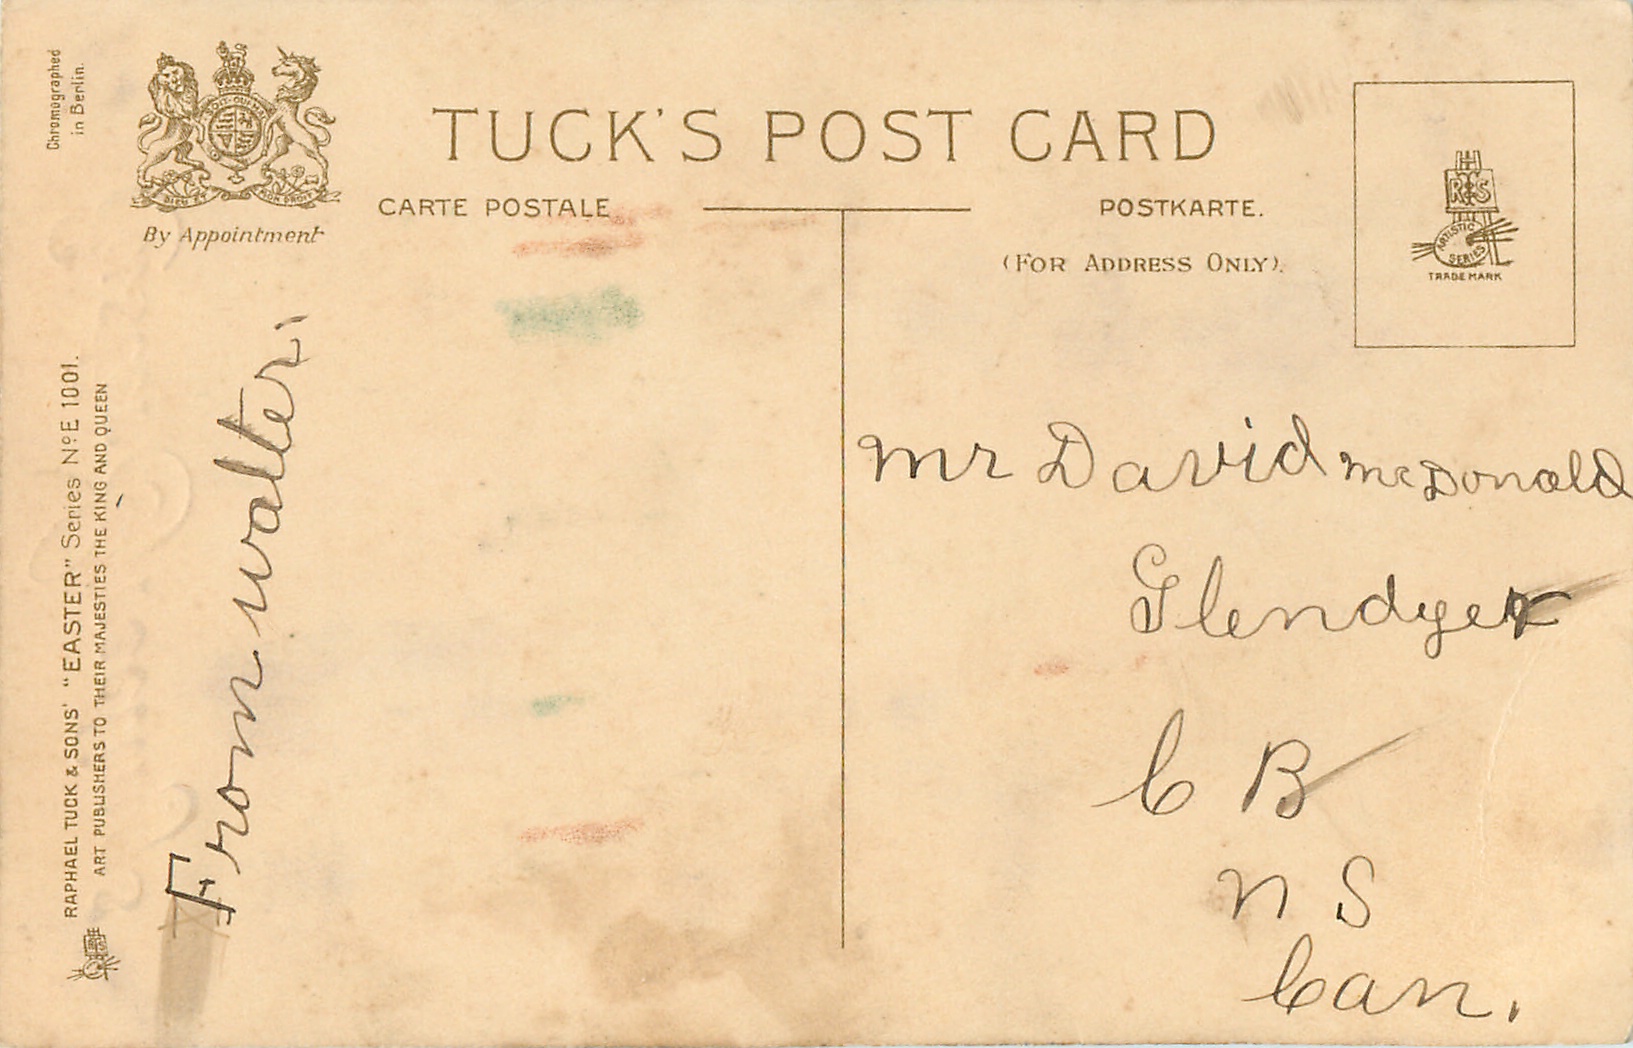 Chromographed
in Berlin.
DIEU ET MON DROIT
By Appointment
TUCK'S POST CARD
CARTE POSTALE
POSTKARTE.
(FOR ADDRESS ONLY).
R&S
ARTISTIC
SERIES
TRADE MARK
RAPHAEL TUCK & SONS' "EASTER" Series Nº E 1001.
ART PUBLISHERS TO THEIR MAJESTIES THE KING AND QUEEN
From walter.
mr David mcDonald
Glendyer
C B
n S
Can.